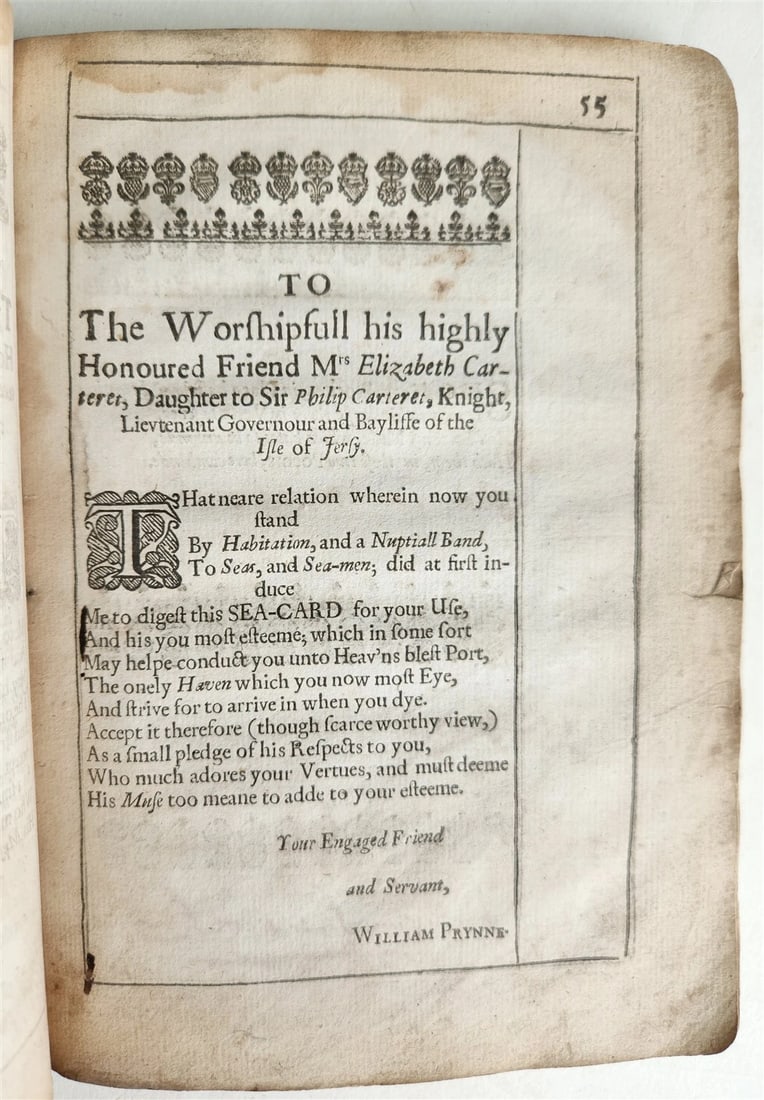 55
TO
The Worſhipfull his highly
Honoured Friend Mrs Elizabeth Car-
teret, Daughter to Sir Philip Carteret, Knight,
Lievtenant Governour and Bayliffe of the
Iſle of Jerſy.
THat neare relation wherein now you
ſtand
By Habitation, and a Nuptiall Band,
To Seas, and Sea-men; did at firſt in-
duce
Me to digeſt this SEA-CARD for your Uſe,
And his you moſt eſteeme; which in ſome ſort
May helpe conduct you unto Heav'ns bleſt Port,
The onely Haven which you now moſt Eye,
And ſtrive for to arrive in when you dye.
Accept it therefore (though ſcarce worthy view,)
As a ſmall pledge of his Reſpects to you,
Who much adores your Vertues, and muſt deeme
His Muſe too meane to adde to your eſteeme.
Your Engaged Friend
and Servant,
WILLIAM PRYNNE.